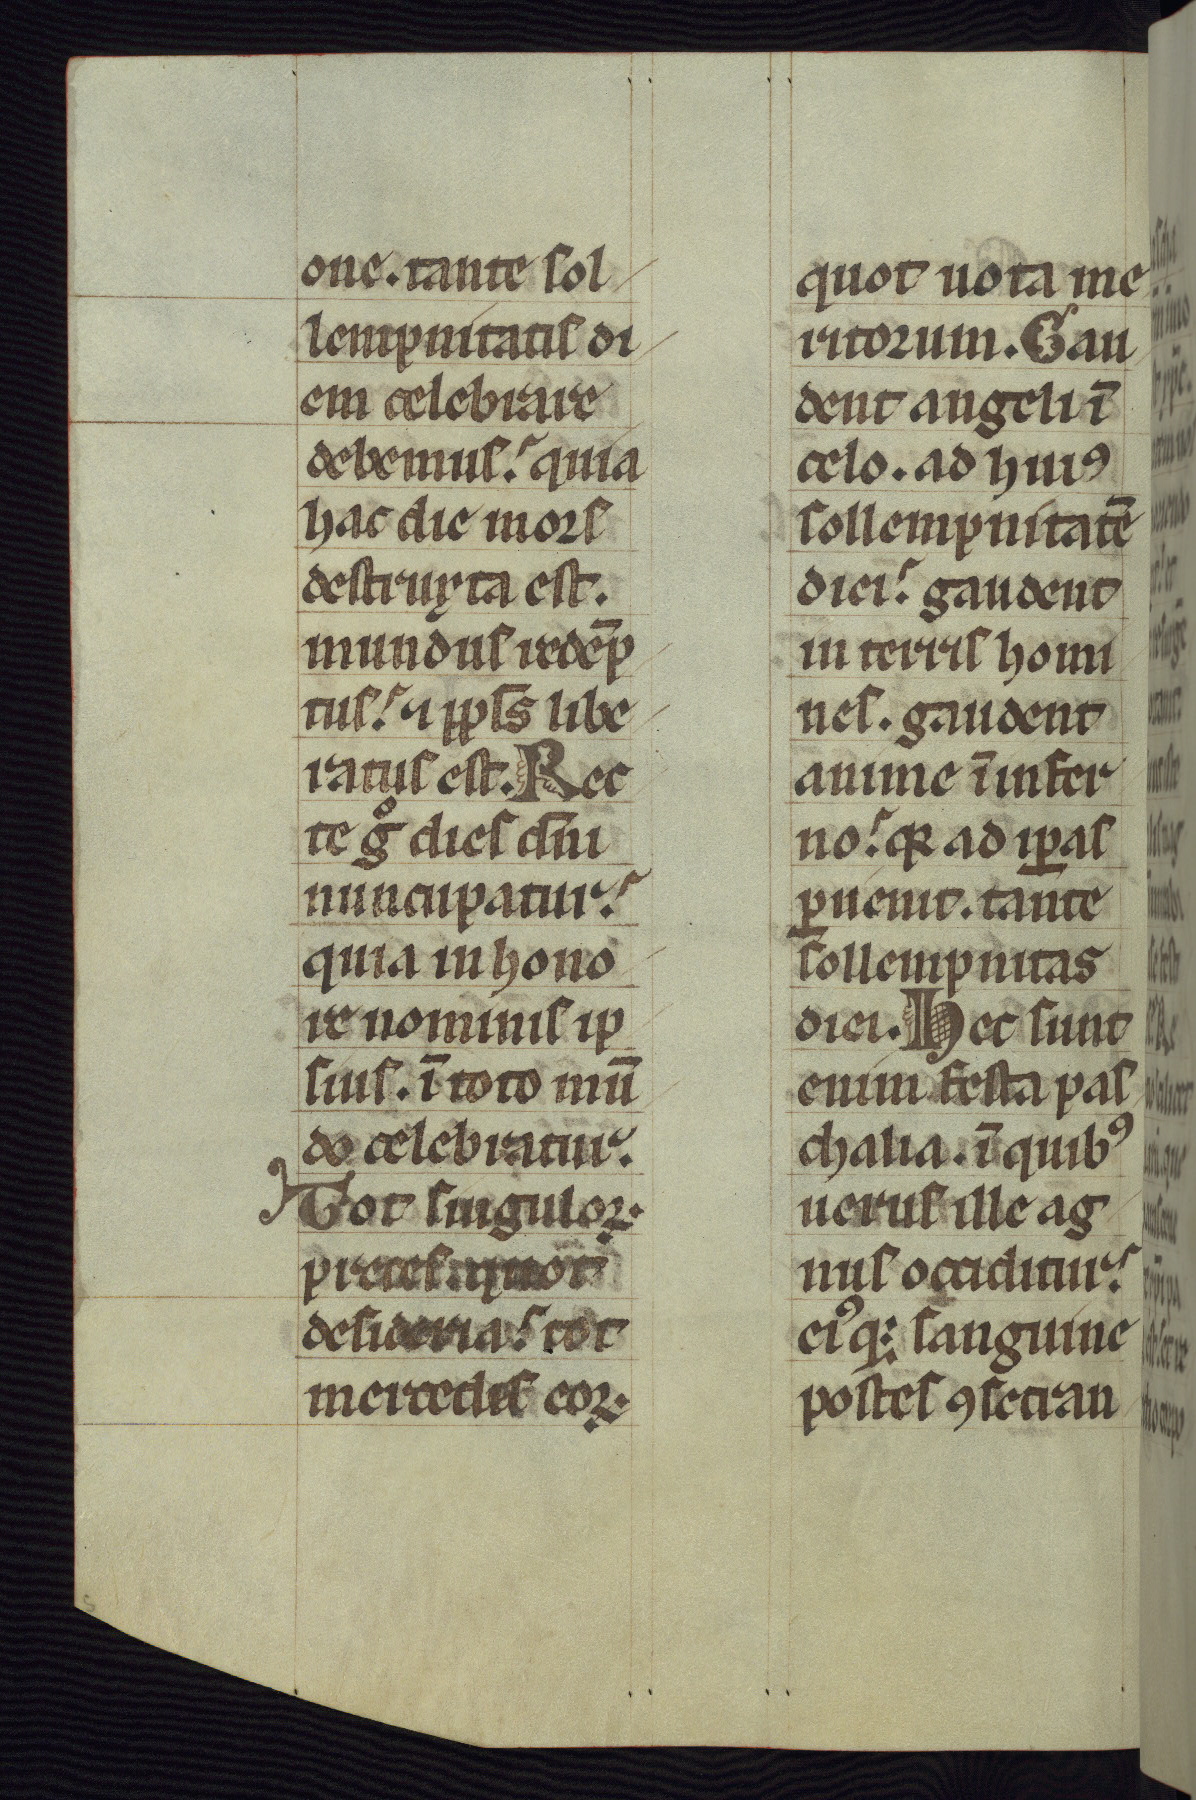 one. tante sol
lempnitatis di
em celebrare
debemus. quia
hac die mors
destructa est.
mundus redēp
tus. ⁊ ipps̄s libe
ratus est. Rec
te gͦ dies dn̄i
nuncupatur.
quia in hono
re nominis ip
sius. ī toto mū
do celebratur.
Tot singuloꝝ
preces. quot
desideria. tot
mercedes eoꝝ
quot uota me
ritorum. Gau
dent angeli ī
celo. ad huiꝰ
sollempnitatē
diei. gaudent
in terris homi
nes. gaudent
anime ī infer
no. qꝛ ad ip̄as
ꝑuenit. tante
sollempnitas
diei. Hec sunt
enim festa pas
chalia. ī quibꝰ
uerus ille ag
nus occiditur.
eiꝰq; sanguine
postes ꝯsecran